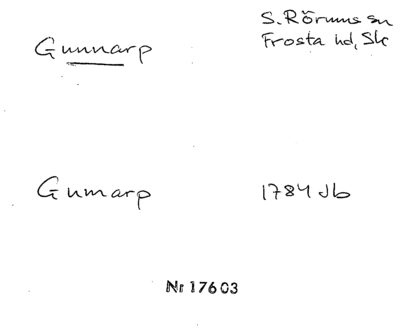 Gunnarp
S. Rörums sn
Frosta hd, Sk
Gumarp
1784 Jb
Nr 17603